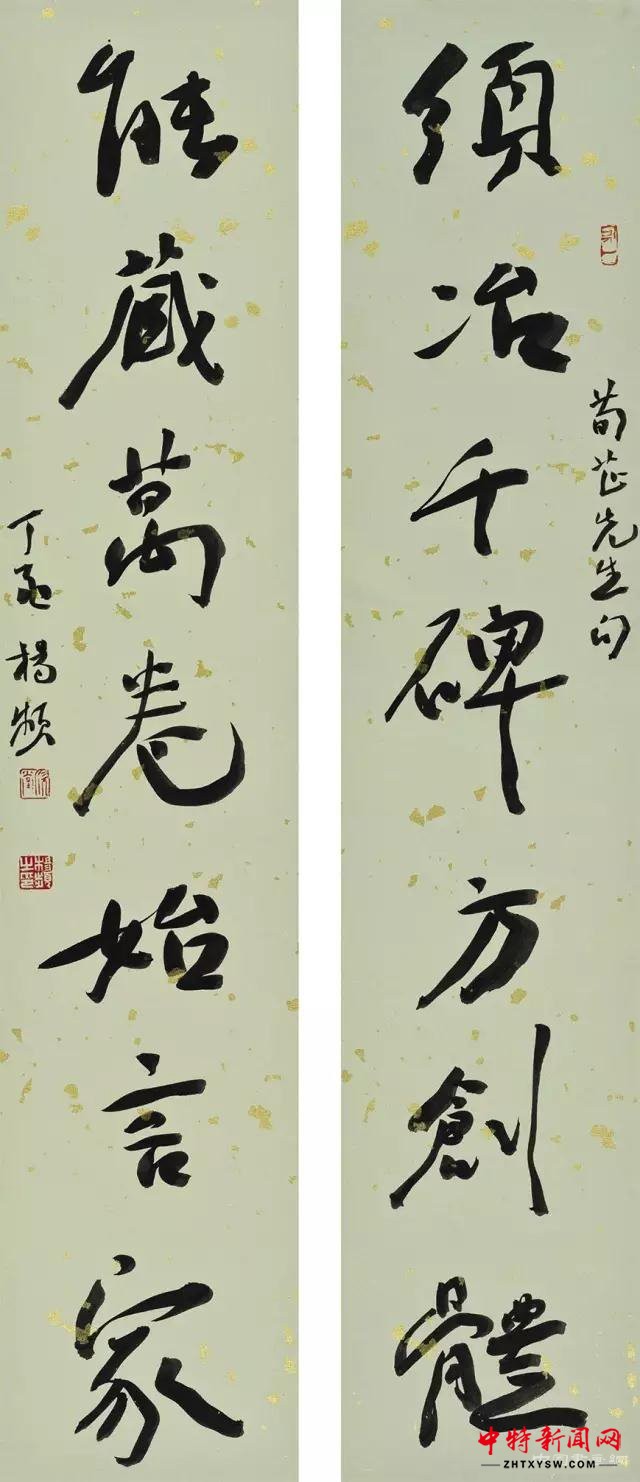 須冶千碑方創體
荀芷先生句
能藏萬卷始言家
丁亥 楊頻
楊頻之印
中特新闻网
ZHTXYSW.COM